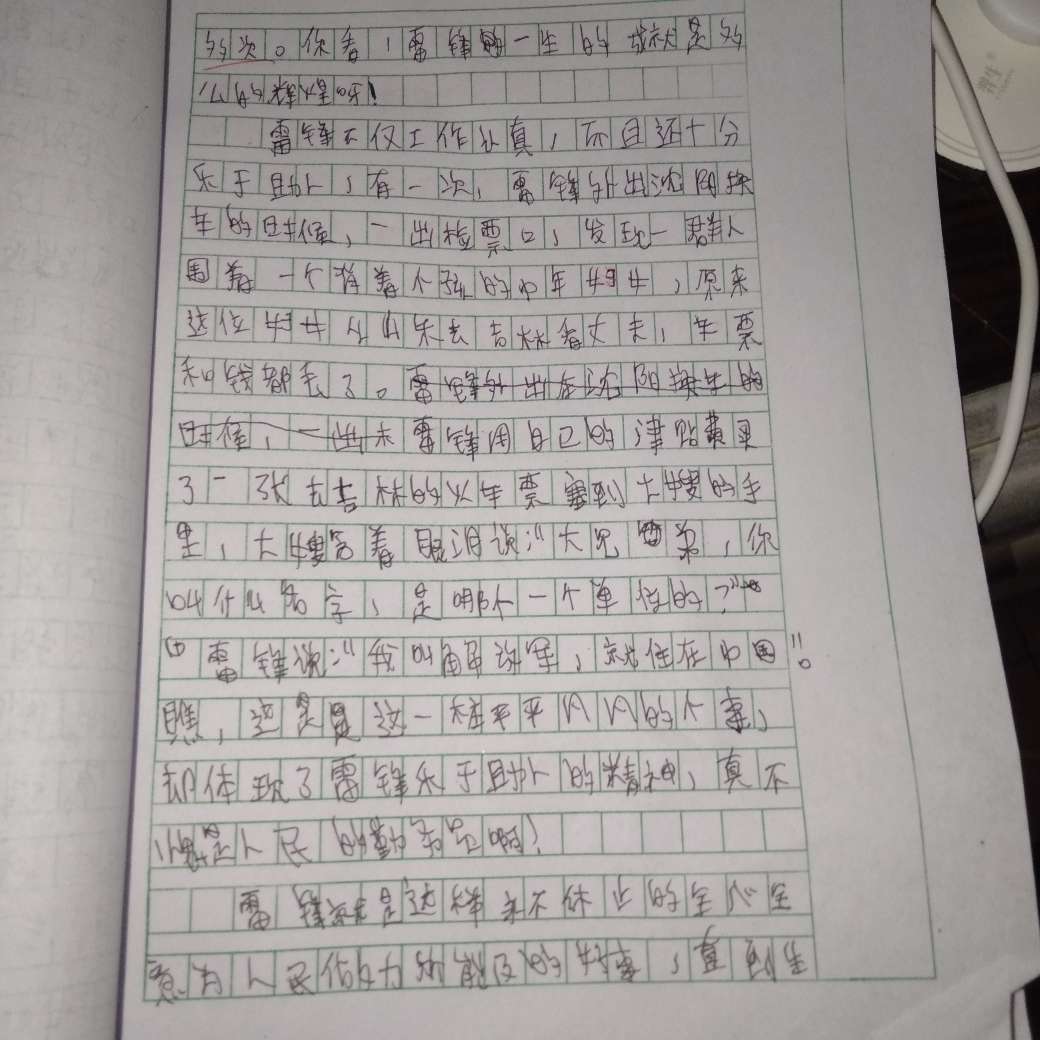 多次。你看，雷锋的一生的成就是多
么的辉煌呀！
雷锋不仅工作认真，而且还十分
乐于助人，有一次，雷锋外出沈阳换
车的时候，一出检票口，发现一群人
围着一个背着小孩的中年妇女，原来
这位妇女从山东去吉林看丈夫，车票
和钱都丢了。雷锋外出在沈阳换车的
时候，一出来雷锋用自己的津贴费买
了一张去吉林的火车票塞到大嫂的手
里，大嫂含着眼泪说：“大兄弟，你
叫什么名字，是哪个一个单位的？”
雷锋说：“我叫解放军，就住在中国”。
瞧，这是是这一桩平平凡凡的小事，
却体现了雷锋乐于助人的精神，真不
愧是人民的勤务员啊！
雷锋就是这样永不休止的全心全
意为人民做力所能及的好事，直到生